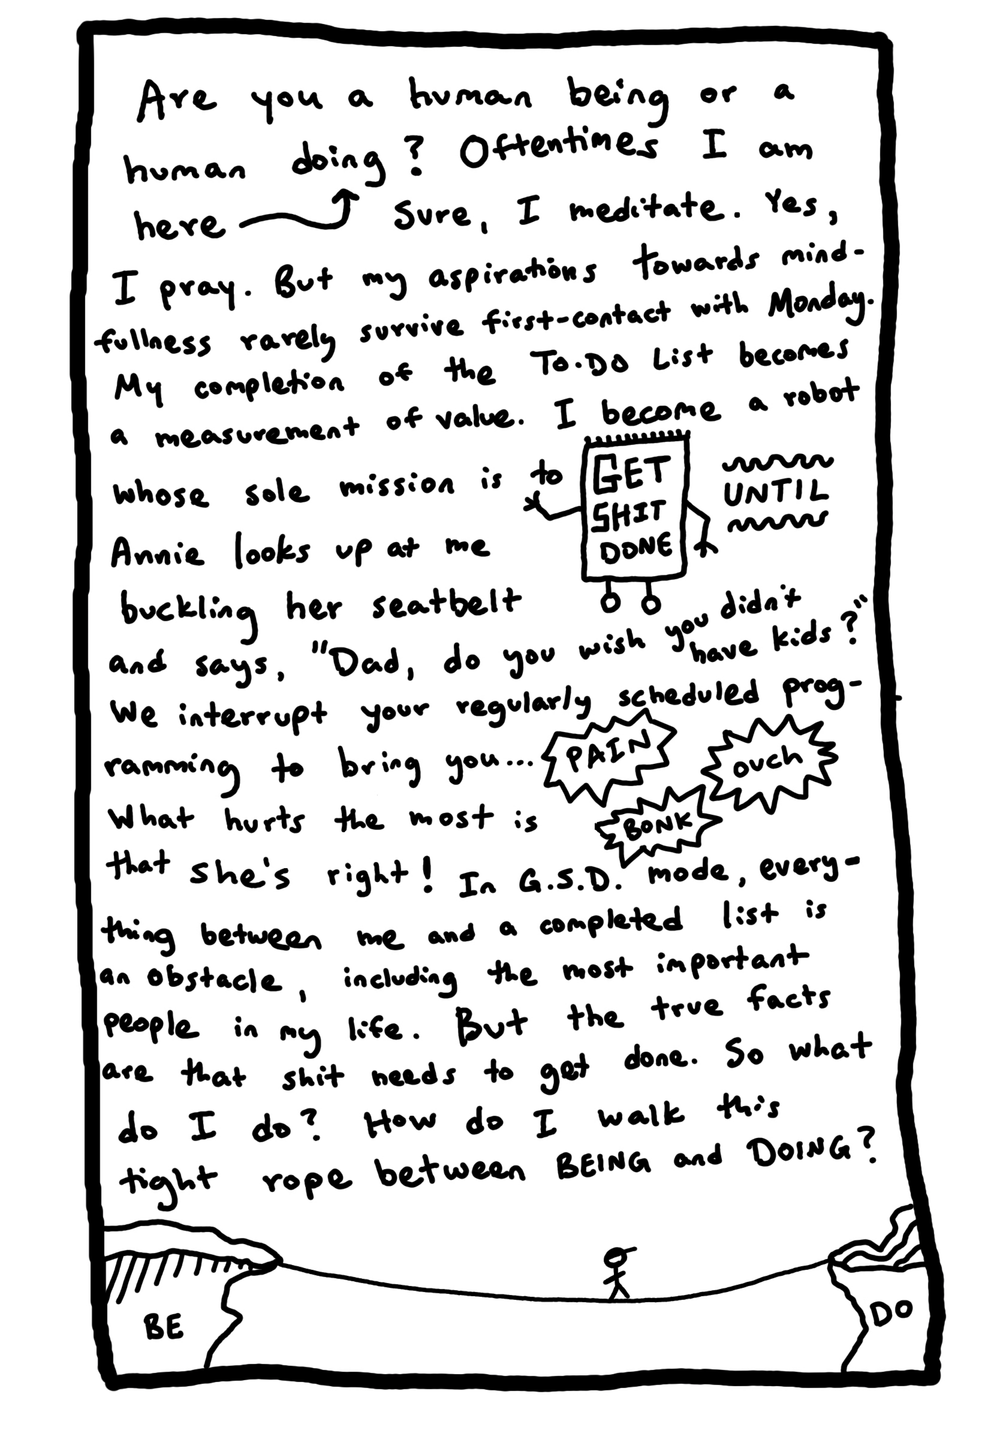 Are you a human being or a
human doing? Oftentimes I am
here Sure, I meditate. Yes,
I pray. But my aspirations towards mind-
fullness rarely survive first-contact with Monday.
My completion of the To-Do List becomes
a measurement of value. I become a robot
whose sole mission is to GET SHIT DONE UNTIL
Annie looks up at me
buckling her seatbelt
and says, "Dad, do you wish you didn't have kids?"
We interrupt your regularly scheduled prog-
ramming to bring you... PAIN OUCH
What hurts the most is BONK
that she's right! In G.S.D. mode, every-
thing between me and a completed list is
an obstacle, including the most important
people in my life. But the true facts
are that shit needs to get done. So what
do I do? How do I walk this
tight rope between BEING and DOING?
BE DO